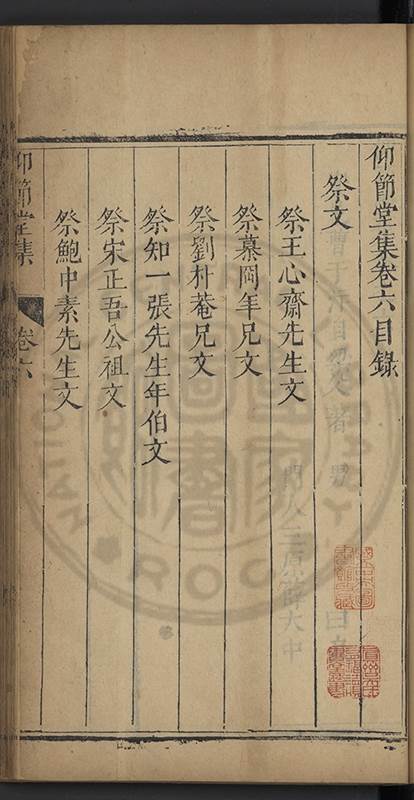 仰節堂集卷六目錄
祭文
祭王心齋先生文
祭慕岡年兄文
祭劉朴菴兄文
祭知一張先生年伯文
祭宋正吾公祖文
祭鮑中素先生文
仰節堂集 卷六